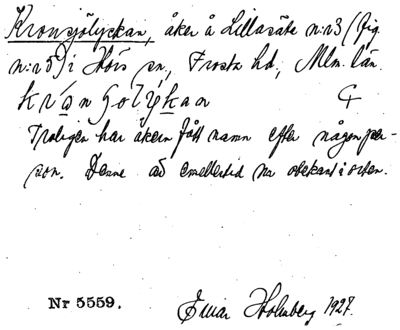 Kronsjölyckan, åker å Lillasäte n:r 3 (fig.
n:r 5) i Hörs sn, Frosta hd, Mlm. län.
Troligen har åkern fått namn efter någon per-
son. Denne är emellertid nu obekant i orten.
Nr 5559. Einar Holmberg 1927.